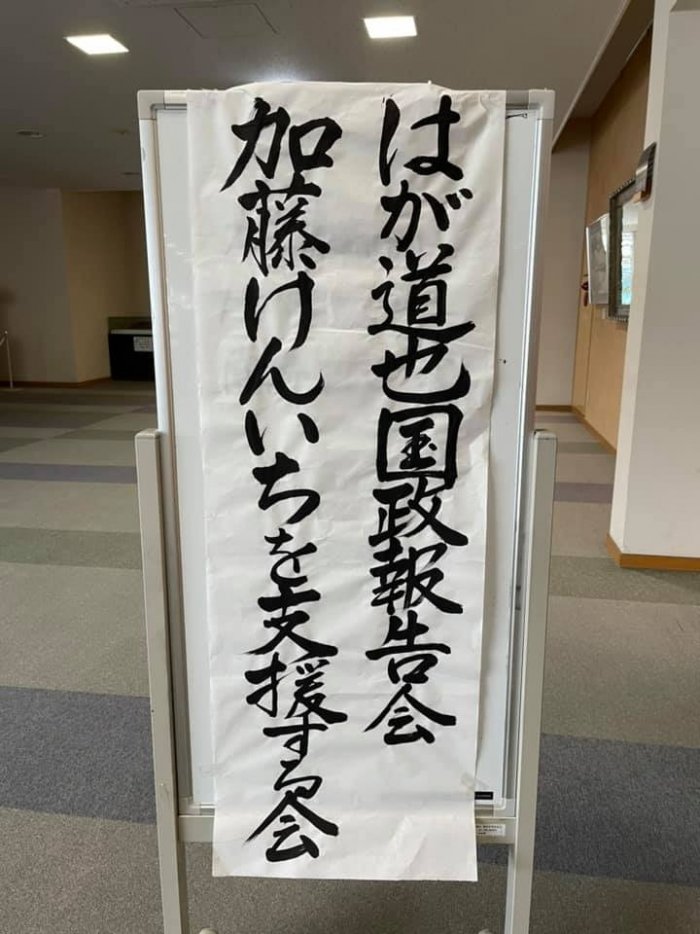 はが道也国政報告会
加藤けんいちを支援する会